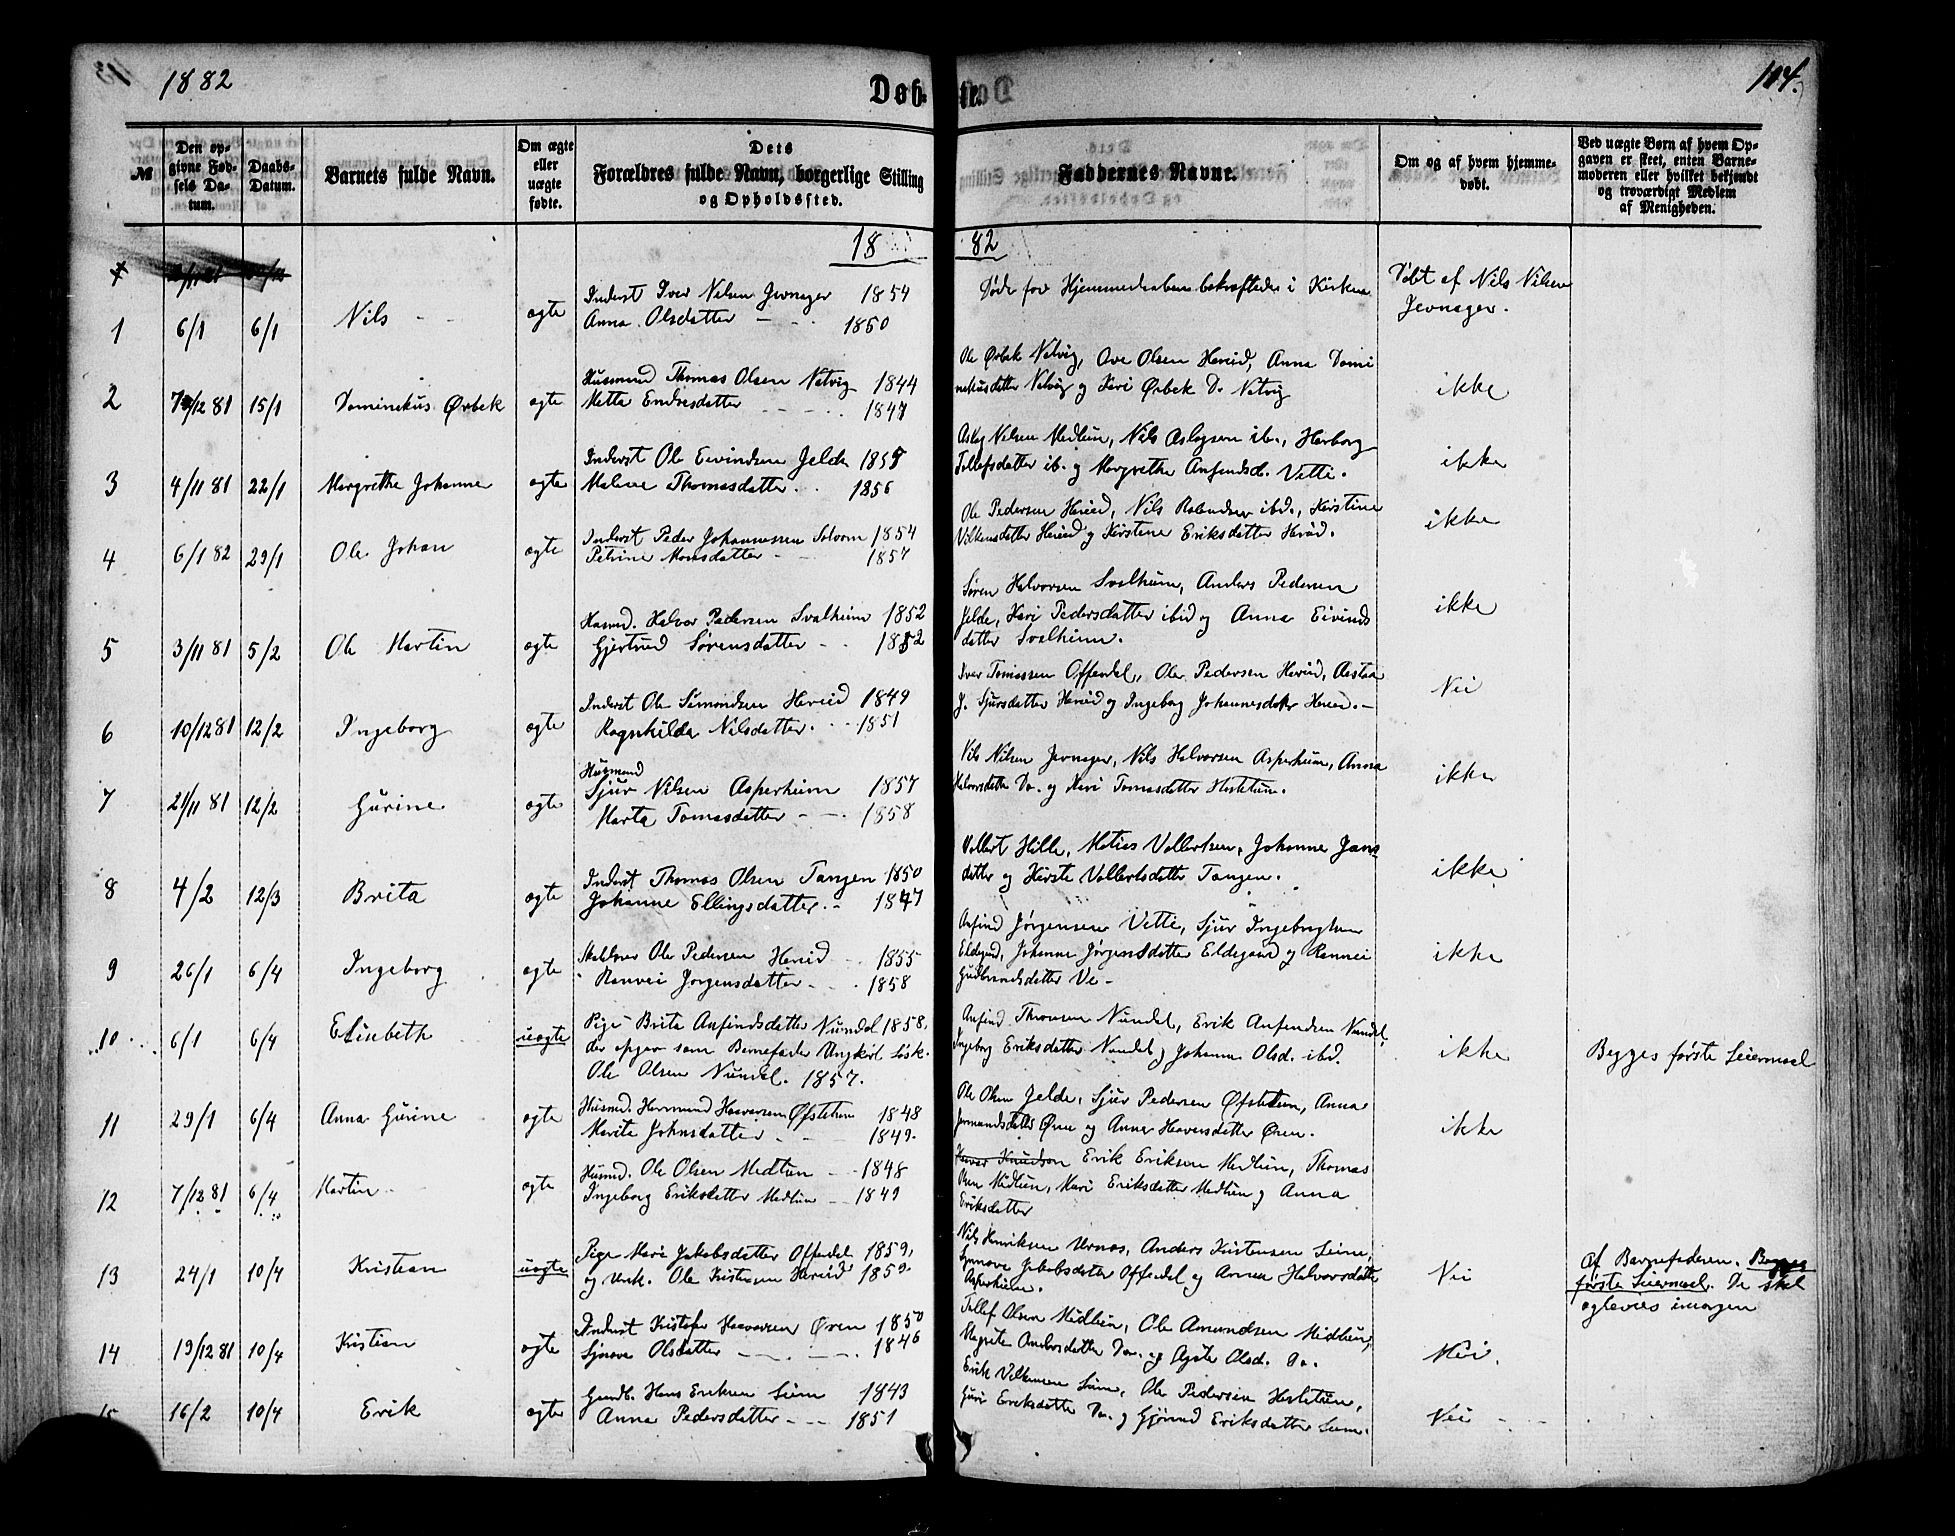 1882
Døb-
te.
114.
№
Den op-
givne Fød-
sels Da-
tum.
Daabs-
Datum.
Barnets fulde Navn.
Om ægte
eller
uægte
fødte.
Dets
Forældres fulde Navn, borgerlige Stilling
og Opholdssted.
Faddernes Navne.
Om og af hvem hjemme-
døbt.
Ved uægte Børn af hvem Op-
gaven er skeet, enten Barne-
moderen eller hvilket bekjendt
og troværdigt Medlem
af Menigheden.
18 82
1 6/1 6/1 Nils ægte
Inderst Iver Nilsen Jevnager 1854
Anna Olsdatter 1850
Døde før Hjemmedaaben bekræftedes i Kirken
Døbt af Nils Nilsen
Jevnager.
2 12 81 15/1 Dominekus Ørbek ægte
Husmand Thomas Olsen Natvig 1844
Metta Endresdatter 1847
Ole Ørbek Natvig, Ove Olsen Hereid, Anna Domi
nekusdatter Natvig og Kari Ørbek D. Natvig
ikke
3 4/11 81 22/1 Margrethe Johanne ægte
Inderst Ole Eivindsen Jelde 1855
Malene Thomasdatter 1856
Aslag Nilsen Medlun, Nils Aslagsen ib., Herborg
Tollefsdatter ib. og Margrethe Anfindsd. Vetti.
ikke
4 6/1 82 29/1 Ole Johan ægte
Inderst Peder Johannessen 1854
Petrine Monsdatter 1857
Ole Pedersen Hereid, Nils ibd., Kirstine
Vilkensdatter Hereid og Kirstine Eriksdatter Hereid.
ikke
5 3/11 81 5/2 Ole Martin ægte
Husmd. Halvor Pedersen Svalheim 1852
Gjertrud Sørensdatter 1852
Søren Halvorsen Svalheim, Anders Pedersen
Jelde, Kari Pedersdatter ibid og Anna Eivinds
datter Svalheim.
ikke
6 10/12 81 12/2 Ingeborg ægte
Inderst Ole Simondsen Hereid 1849
Ragnhilda Nilsdatter 1851
Iver Tomassen Offerdal, Ole Pedersen Hereid,
J. Sjursdatter Hereid og Ingeborg Johannesdatter Hereid.
Nei
7 21/11 81 12/2 Gurine ægte
Husmand
Sjur Nilsen Asperheim 1857
Marta Tomasdatter 1858
Nils Nilsen Jevnager, Nils Halvorsen Asperheim, Anna
Halvorsdatter Do. og Kari Tomasdatter Hestetun.
ikke
8 4/2 12/3 Brita ægte
Inderst Thomas Olsen Tangen 1850
Johanne Ellingsdatter 1847
Vollert Hille, Matias Vollertsen, Johanne Jans
datter og Kirste Vollertsdatter Tangen.
ikke
9 26/1 6/4 Ingeborg ægte
Ole Pedersen Hereid 1855
Ranvei Jørgensdatter 1858
Anfind Jørgensen Vetti, Sjur
Eldegard, Johanne Jørgensdatter Eldegard og Rannei
Gudbrandsdatter Ve
ikke
10 6/1 6/4 Elisabeth uægte
Pige Brita Anfindsdatter Nundal 1858,
der opgav som Barnefader Ungkarl Løsk.
Ole Olsen Nundal. 1857.
Anfind Thomsen Nundal, Erik Anfindsen Nundal,
Ingeborg Eriksdatter Nundal og Johanna Olsd. ibd.
ikke
Begges første Leiermaal
11 29/1 6/4 Anna Gurine ægte
Husmd. Hermund Haavorsen Øfstetun 1848
Marita Johnsdatter 1849.
Ole Olsen Jelde, Sjur Pedersen Øfstetun, Anna
Jermundsdatter Øren og Anna Haavorsdatter Øren.
ikke
12 7/12 81 6/4 Martin ægte
Husmd. Ole Olsen Medlun 1848
Ingeborg Eriksdatter Medlun 1849
Knudson Erik Eriksen Medlun, Thomas
Olsen Midlun, Kari Eriksdatter Medlun og Anna
Eriksdatter
13 24/1 10/4 Kristian uægte
Pige Kari Jakobsdatter Offerdal 1859,
og Unk. Ole Kristensen Hereid 1859
Nils Henriksen Urnes, Anders Kristensen Seim,
Synnøve Jakobsdatter Offerdal og Anna Halvorsdatter
Asperheim.
Nei
Af Barnefaderen. Begges
første Leiermaal. De skal
ægtevies imorgen
14 19/12 81 10/4 Kristian ægte
Inderst Kristofer Haavorsen Øren 1850
Synøve Olsdatter 1846
Tollef Olsen Midlun, Ole Amundsen Midlun,
Magrete Andersdatter Do. og Agate Olsd. Do.
Nei.
15 16/2 10/4 Erik ægte
Gaardb. Hans Eriksen Seim 1843
Anna Pedersdatter 1851
Erik Vilkensen Seim, Ole Pedersen Hestetun,
Guri Eriksdatter Do. og Gjørond Eriksdatter Seim.
Nei